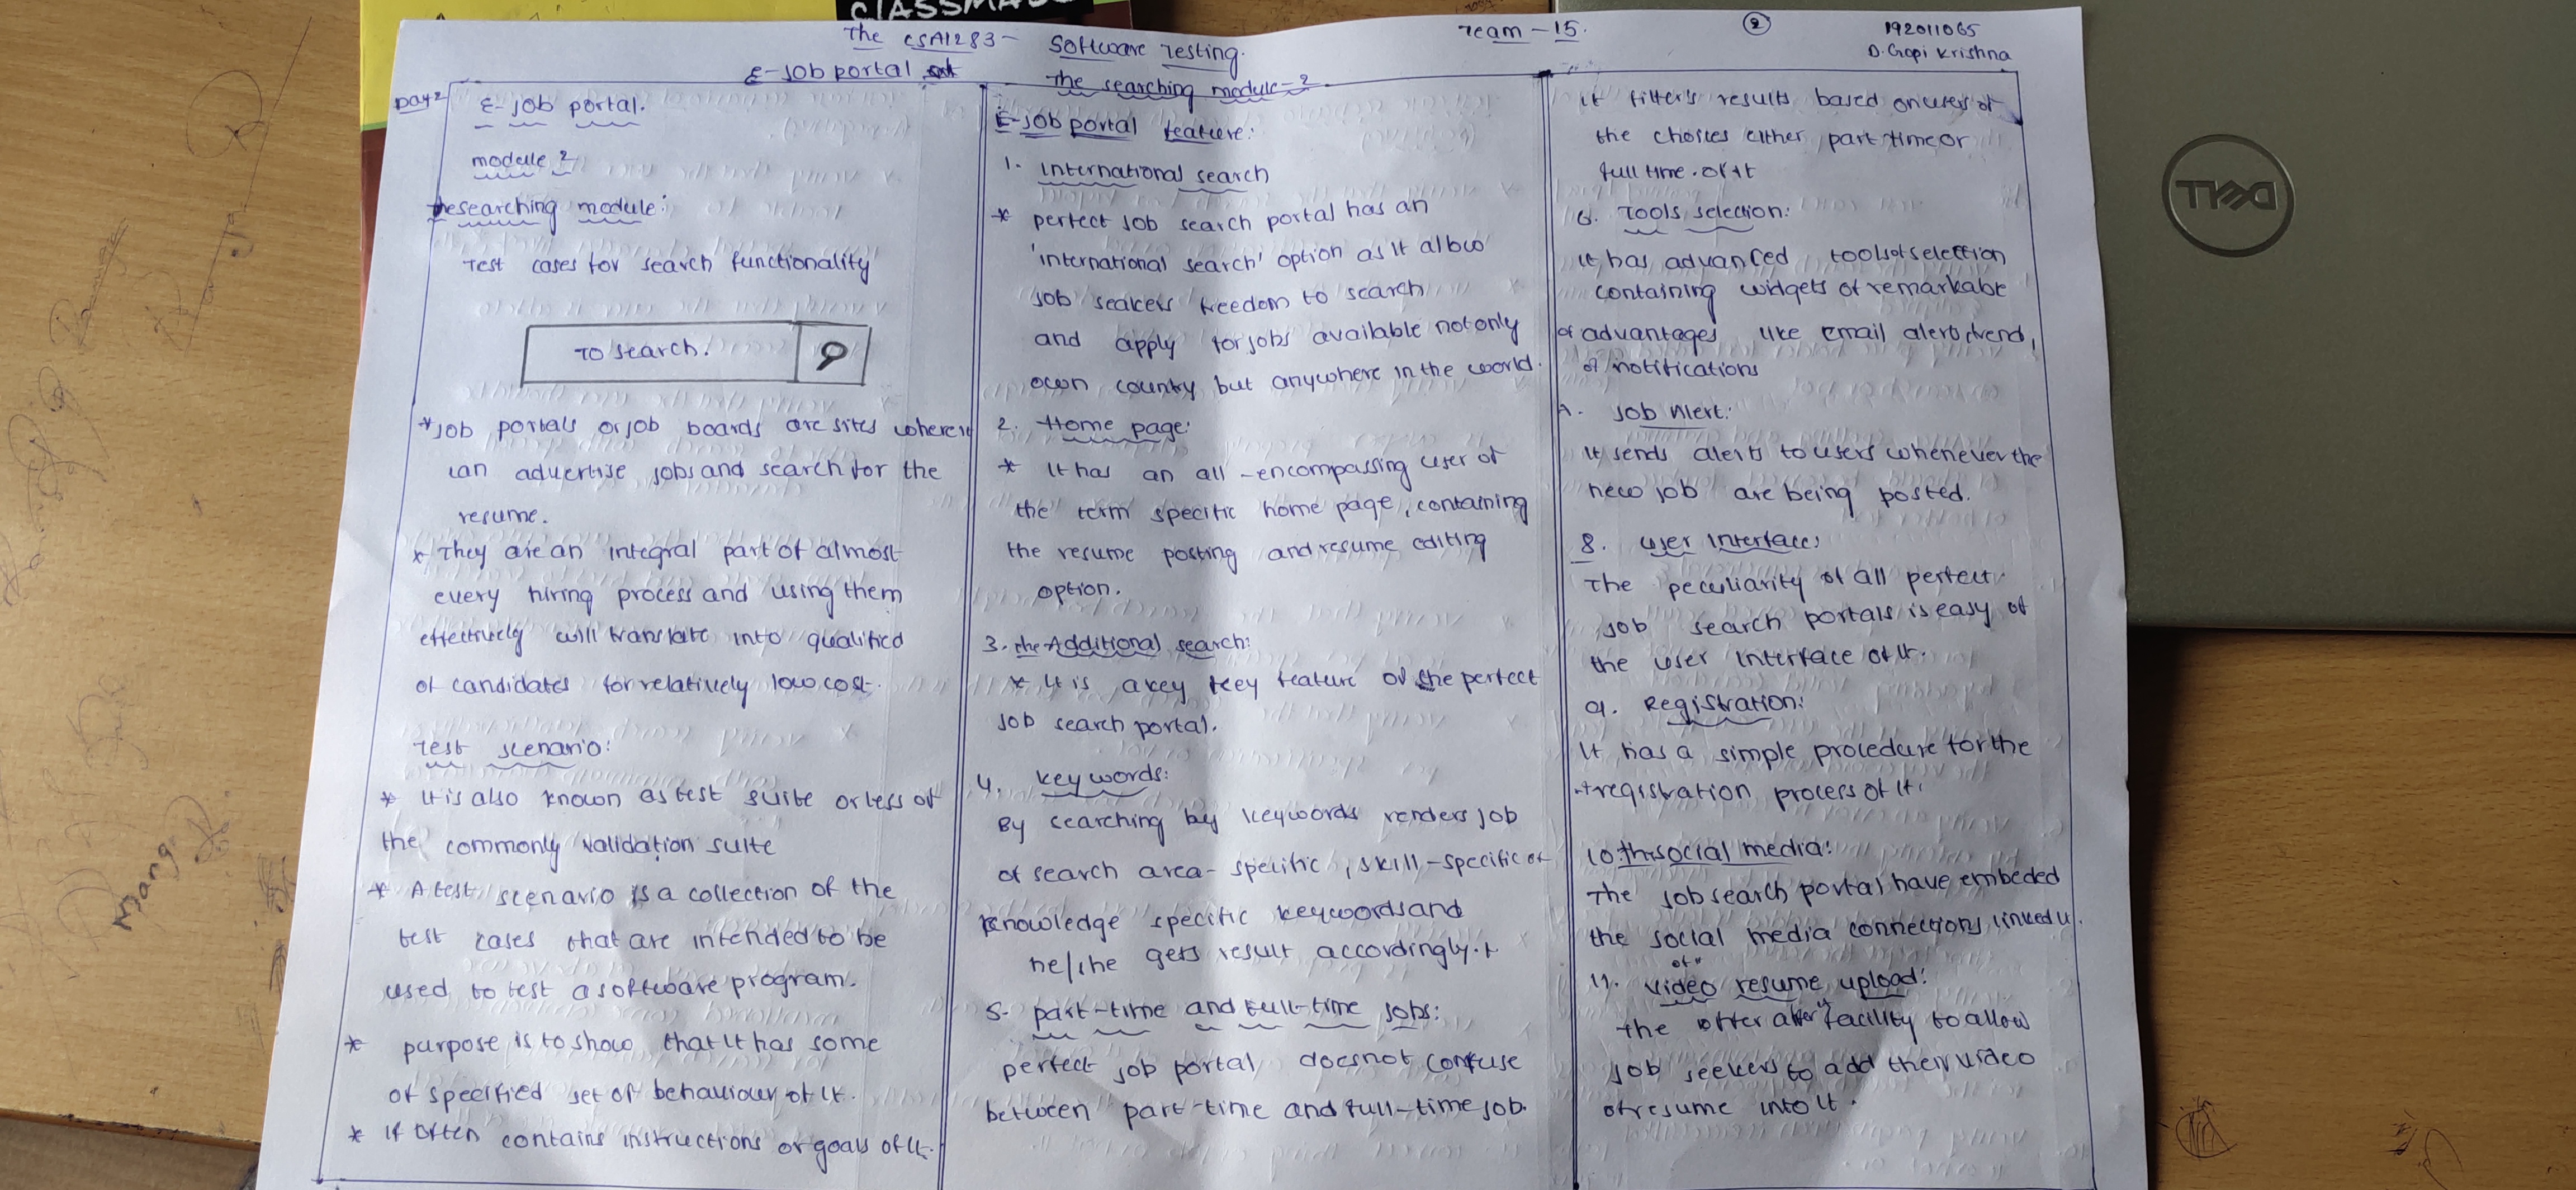 The CSA1283 - Software Testing.
Team - 15.
2
192011065
D. Gopi Krishna
E-Job portal
The searching module-2
Day2
E-job portal.
module 2
Researching module:
Test cases for search functionality
To search.
* Job portals or job boards are sites wherein
can advertise jobs and search for the
resume.
* They are an integral part of almost
every hiring process and using them
effectively will translate into qualified
of candidates for relatively low cost.
Test scenario:
* It is also known as test suite or tess of
the commonly validation suite
* A test scenario is a collection of the
test cases that are intended to be
used to test a software program.
* purpose is to show that it has some
of specified set of behaviour of it.
* It often contains instructions or goals of it.
E-job portal feature:
1. international search
* perfect job search portal has an
'international search' option as it allow
job seekers freedom to search
and apply for jobs available not only
own country but anywhere in the world.
2. Home page:
* It has an all-encompassing user of
the term specific home page, containing
the resume posting and resume editing
option.
3. the Additional search:
* It is a key key feature of the perfect
job search portal.
4. key words:
By searching by keywords renders job
of search area-specific, skill-specific of
knowledge specific keywords and
he/she gets result accordingly.
5. part-time and full-time jobs:
perfect job portal doesnot confuse
between part-time and full-time job.
it filter's results based on users of
the choises either part time or
full time of it
6. Tools selection:
it has advanced tools of selection
containing widgets of remarkable
of advantages like email alerts,
of notifications
7. Job Alert:
It sends alerts to users whenever the
new job are being posted.
8. user interface:
The peculiarity of all perfect
job search portals is easy of
the user interface of it.
9. Registration:
It has a simple procedure for the
registration process of it.
10. the social media:
The job search portal have embeded
the social media connections
11. video resume upload:
the offer of facility to allow
job seekers to add their video
of resume into it.
DELL